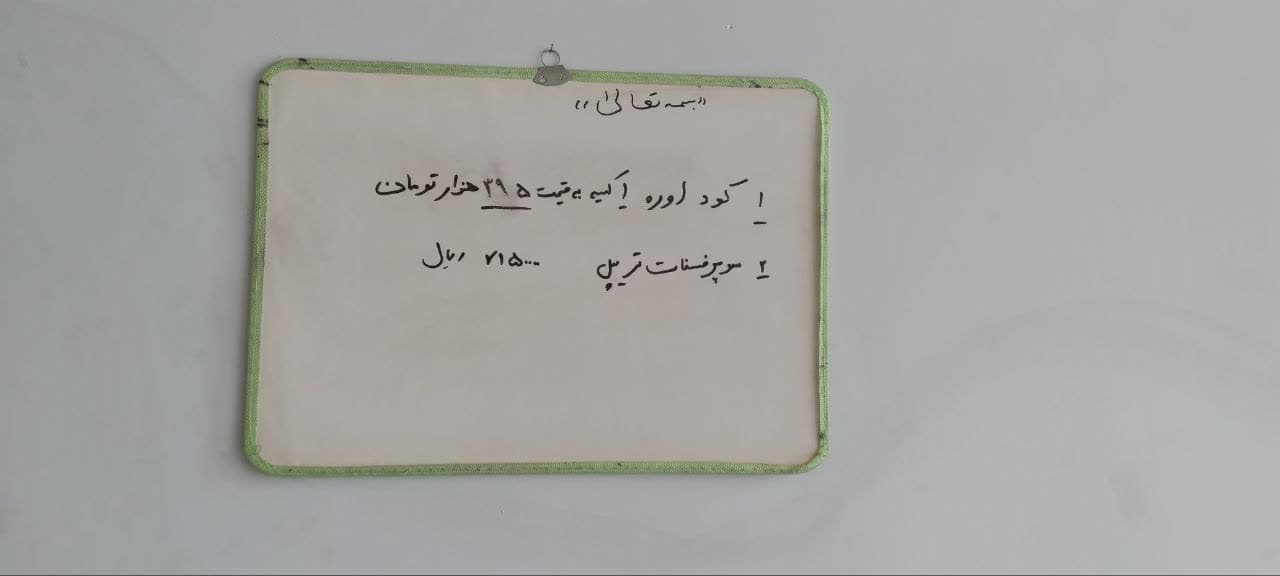 «بسمه تعالی»
۱ کود اوره ۱ کیسه به قیمت ۳۹۵ هزار تومان
۲ سوپرفسفات تریپل ۷۱۵۰۰۰۰ ریال